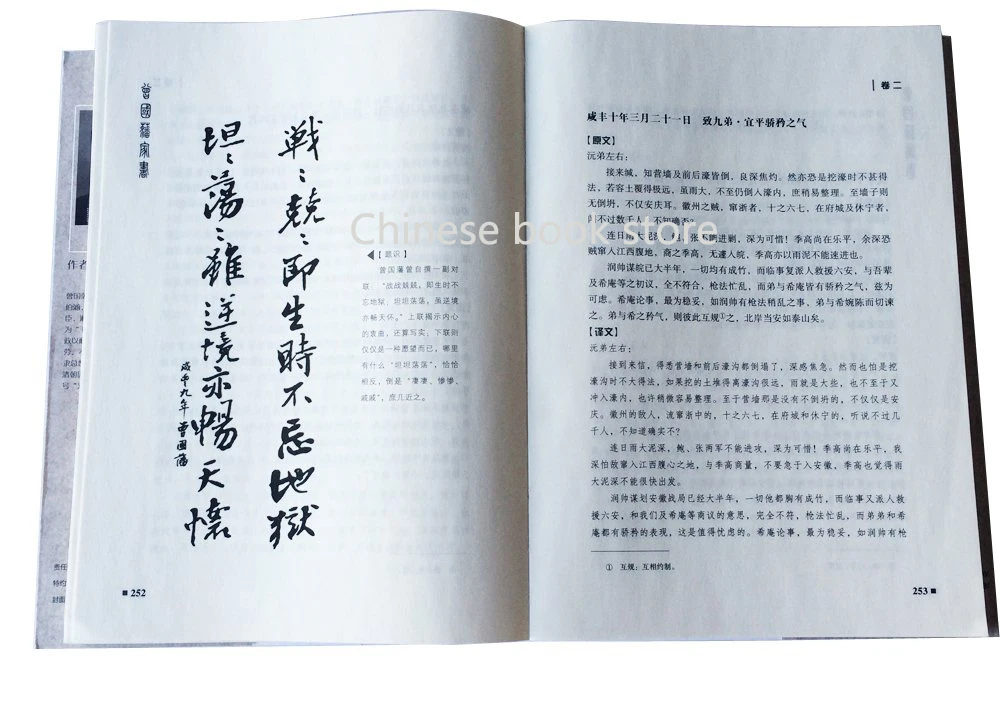 曾國藩家書
戰戰兢兢即生時不忘地獄
坦坦蕩蕩雖逆境亦暢天懷
咸丰九年 曾國藩
【题识】
曾国藩曾自撰一副对
联:“战战兢兢,即生时不
忘地狱;坦坦荡荡,虽逆境
亦畅天怀。”上联揭示内心
的衷曲,还算写实;下联则
仅仅是一种愿望而已,哪里
有什么“坦坦荡荡”,恰恰
相反,倒是“凄凄、惨惨、
戚戚”,庶几近之。
252
卷二
咸丰十年三月二十一日 致九弟·宜平骄矜之气
【原文】
沅弟左右:
接来缄,知营墙及前后濠皆倒,良深焦灼。然亦恐是挖濠时不甚得
法,若容土覆得极远,虽雨大,不至仍倒入濠内,庶稍易整理。至墙子则
无倒坍,不仅安庆耳。徽州之贼,窜浙者,十之六七,在府城及休宁者,
闻不过数千人,不知确否?
连日雨大泥深,鲍、张不能进剿,深为可惜!季高尚在乐平,余深恐
贼窜入江西腹地,商之季高,无遽入皖,季高亦以雨泥不能速进也。
润帅谋皖已大半年,一切均有成竹,而临事复派人救援六安,与吾辈
及希庵等之初议,全不符合,枪法忙乱,而弟与希庵皆有骄矜之气,兹为
可虑。希庵论事,最为稳妥,如润帅有枪法稍乱之事,弟与希婉陈而切谏
之。弟与希之矜气,则彼此互规①之,北岸当安如泰山矣。
【译文】
沅弟左右:
接到来信,得悉营墙和前后濠沟都倒塌了,深感焦急。然而也怕是挖
濠沟时不大得法,如果挖的土堆得离濠沟很远,雨就是大些,也不至于又
冲入濠内,也许稍微容易整理。至于营墙那是没有不倒坍的,不仅仅是安
庆。徽州的敌人,流窜浙中的,十之六七,在府城和休宁的,听说不过几
千人,不知道确实不?
连日雨大泥深,鲍、张两军不能进攻,深为可惜!季高尚在乐平,我
深怕敌窜入江西腹心之地,与季高商量,不要急于入安徽,季高也觉得雨
大泥深不能很快出发。
润帅谋划安徽战局已经大半年,一切他都胸有成竹,而临事又派人救
援六安,和我们及希庵等商议的意思,完全不符,枪法忙乱,而弟弟和希
庵都有骄矜的表现,这是值得忧虑的。希庵论事,最为稳妥,如润帅有枪
① 互规:互相约制。
253
Chinese book store